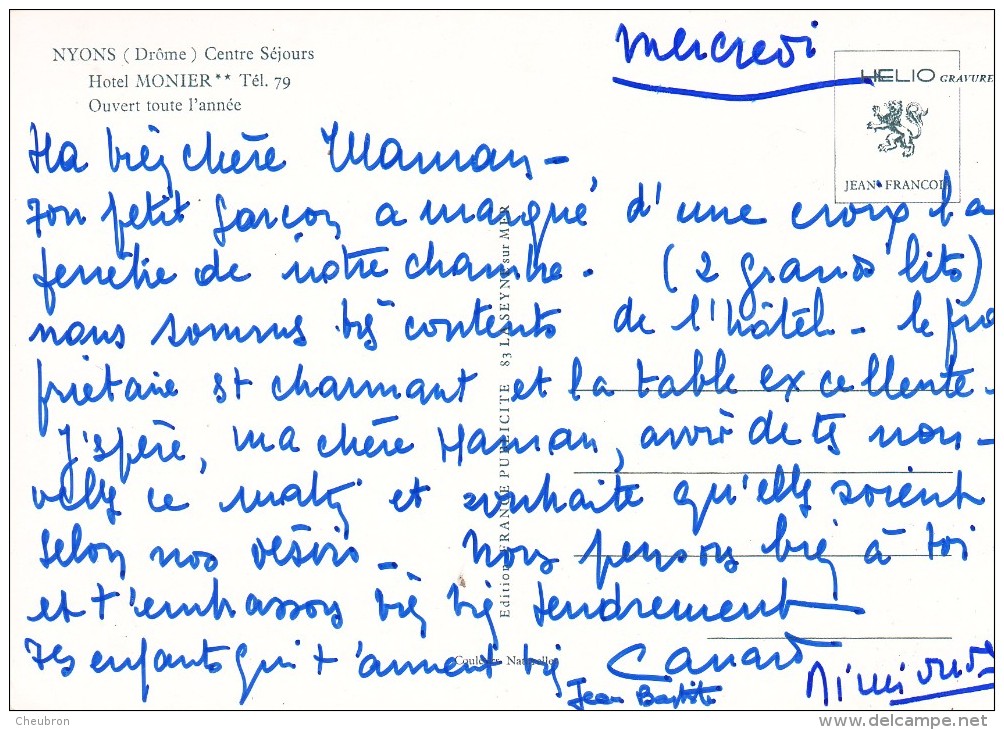 mercredi
NYONS ( Drôme ) Centre Séjours
Hotel MONIER** Tél. 79
Ouvert toute l'année
HELIO GRAVURE
JEAN FRANCOIS
Ma bien chère Maman –
Ton petit garçon a marqué d'une croix la
fenêtre de notre chambre. (2 grands lits)
nous sommes très contents de l'hôtel – le pro
priétaire est charmant et la table excellente –
J'espère, ma chère Maman, avoir de tes nou–
velles ce matin et souhaite qu'elles soient
selon nos désirs – Nous pensons bien à toi
et t'embrassons bien bien tendrement
Tes enfants qui t'aiment bien Canard
Jean Baptiste
Editions GRANDE PUBLICITE 83 LA SEYNE sur MER
Couleurs Naturelles
Cheubron
www.delcampe.net